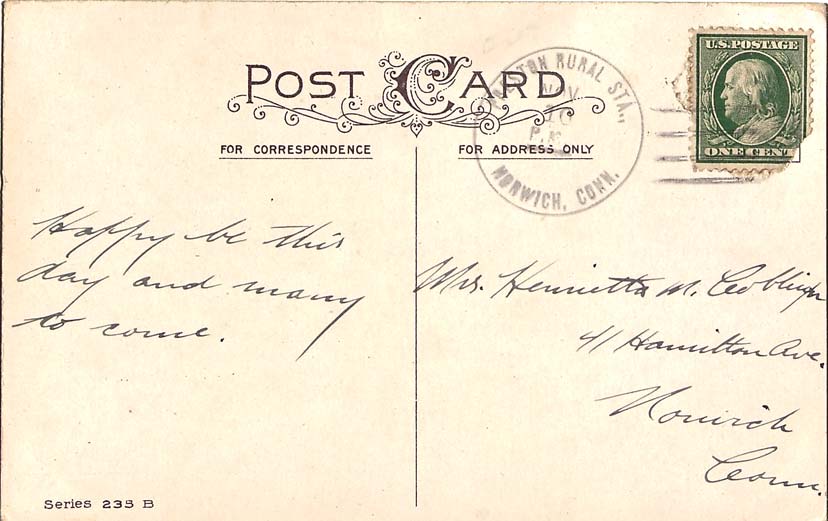 POST CARD
FOR CORRESPONDENCE
FOR ADDRESS ONLY
PRESTON RURAL STA.,
NOV
10
P.M.
NORWICH, CONN.
U.S. POSTAGE
ONE CENT
Happy be this
day and many
to come.
Mrs. Henrietta M.
41 Hamilton Ave.
Norwich
Conn.
Series 235 B